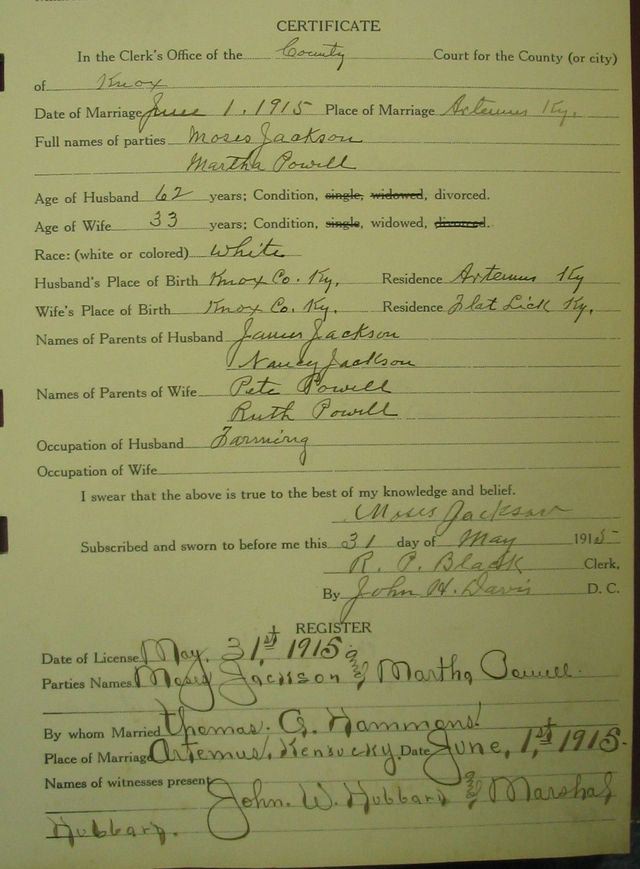 CERTIFICATE
In the Clerk's Office of the County Court for the County (or city)
of Knox
Date of Marriage June 1, 1915 Place of Marriage Artemus Ky.
Full names of parties Moses Jackson
Martha Powell
Age of Husband 62 years; Condition, single, widowed, divorced.
Age of Wife 33 years; Condition, single, widowed, divorced.
Race: (white or colored) White
Husband's Place of Birth Knox Co. Ky. Residence Artemus Ky
Wife's Place of Birth Knox Co. Ky. Residence Flat Lick Ky.
Names of Parents of Husband James Jackson
Nancy Jackson
Names of Parents of Wife Pete Powell
Ruth Powell
Occupation of Husband Farming
Occupation of Wife
I swear that the above is true to the best of my knowledge and belief.
Moses Jackson
Subscribed and sworn to before me this 31 day of May 1915
R. P. Black Clerk,
By John H. Davis D. C.
REGISTER
Date of License May, 31,st 1915
Parties Names Moses Jackson & Martha Powell.
By whom Married Thomas. G. Hammons!
Place of Marriage Artemus, Kensucky, Date June, 1,st 1915-
Names of witnesses present John. W. Hubbard & Marshal
Hubbard.